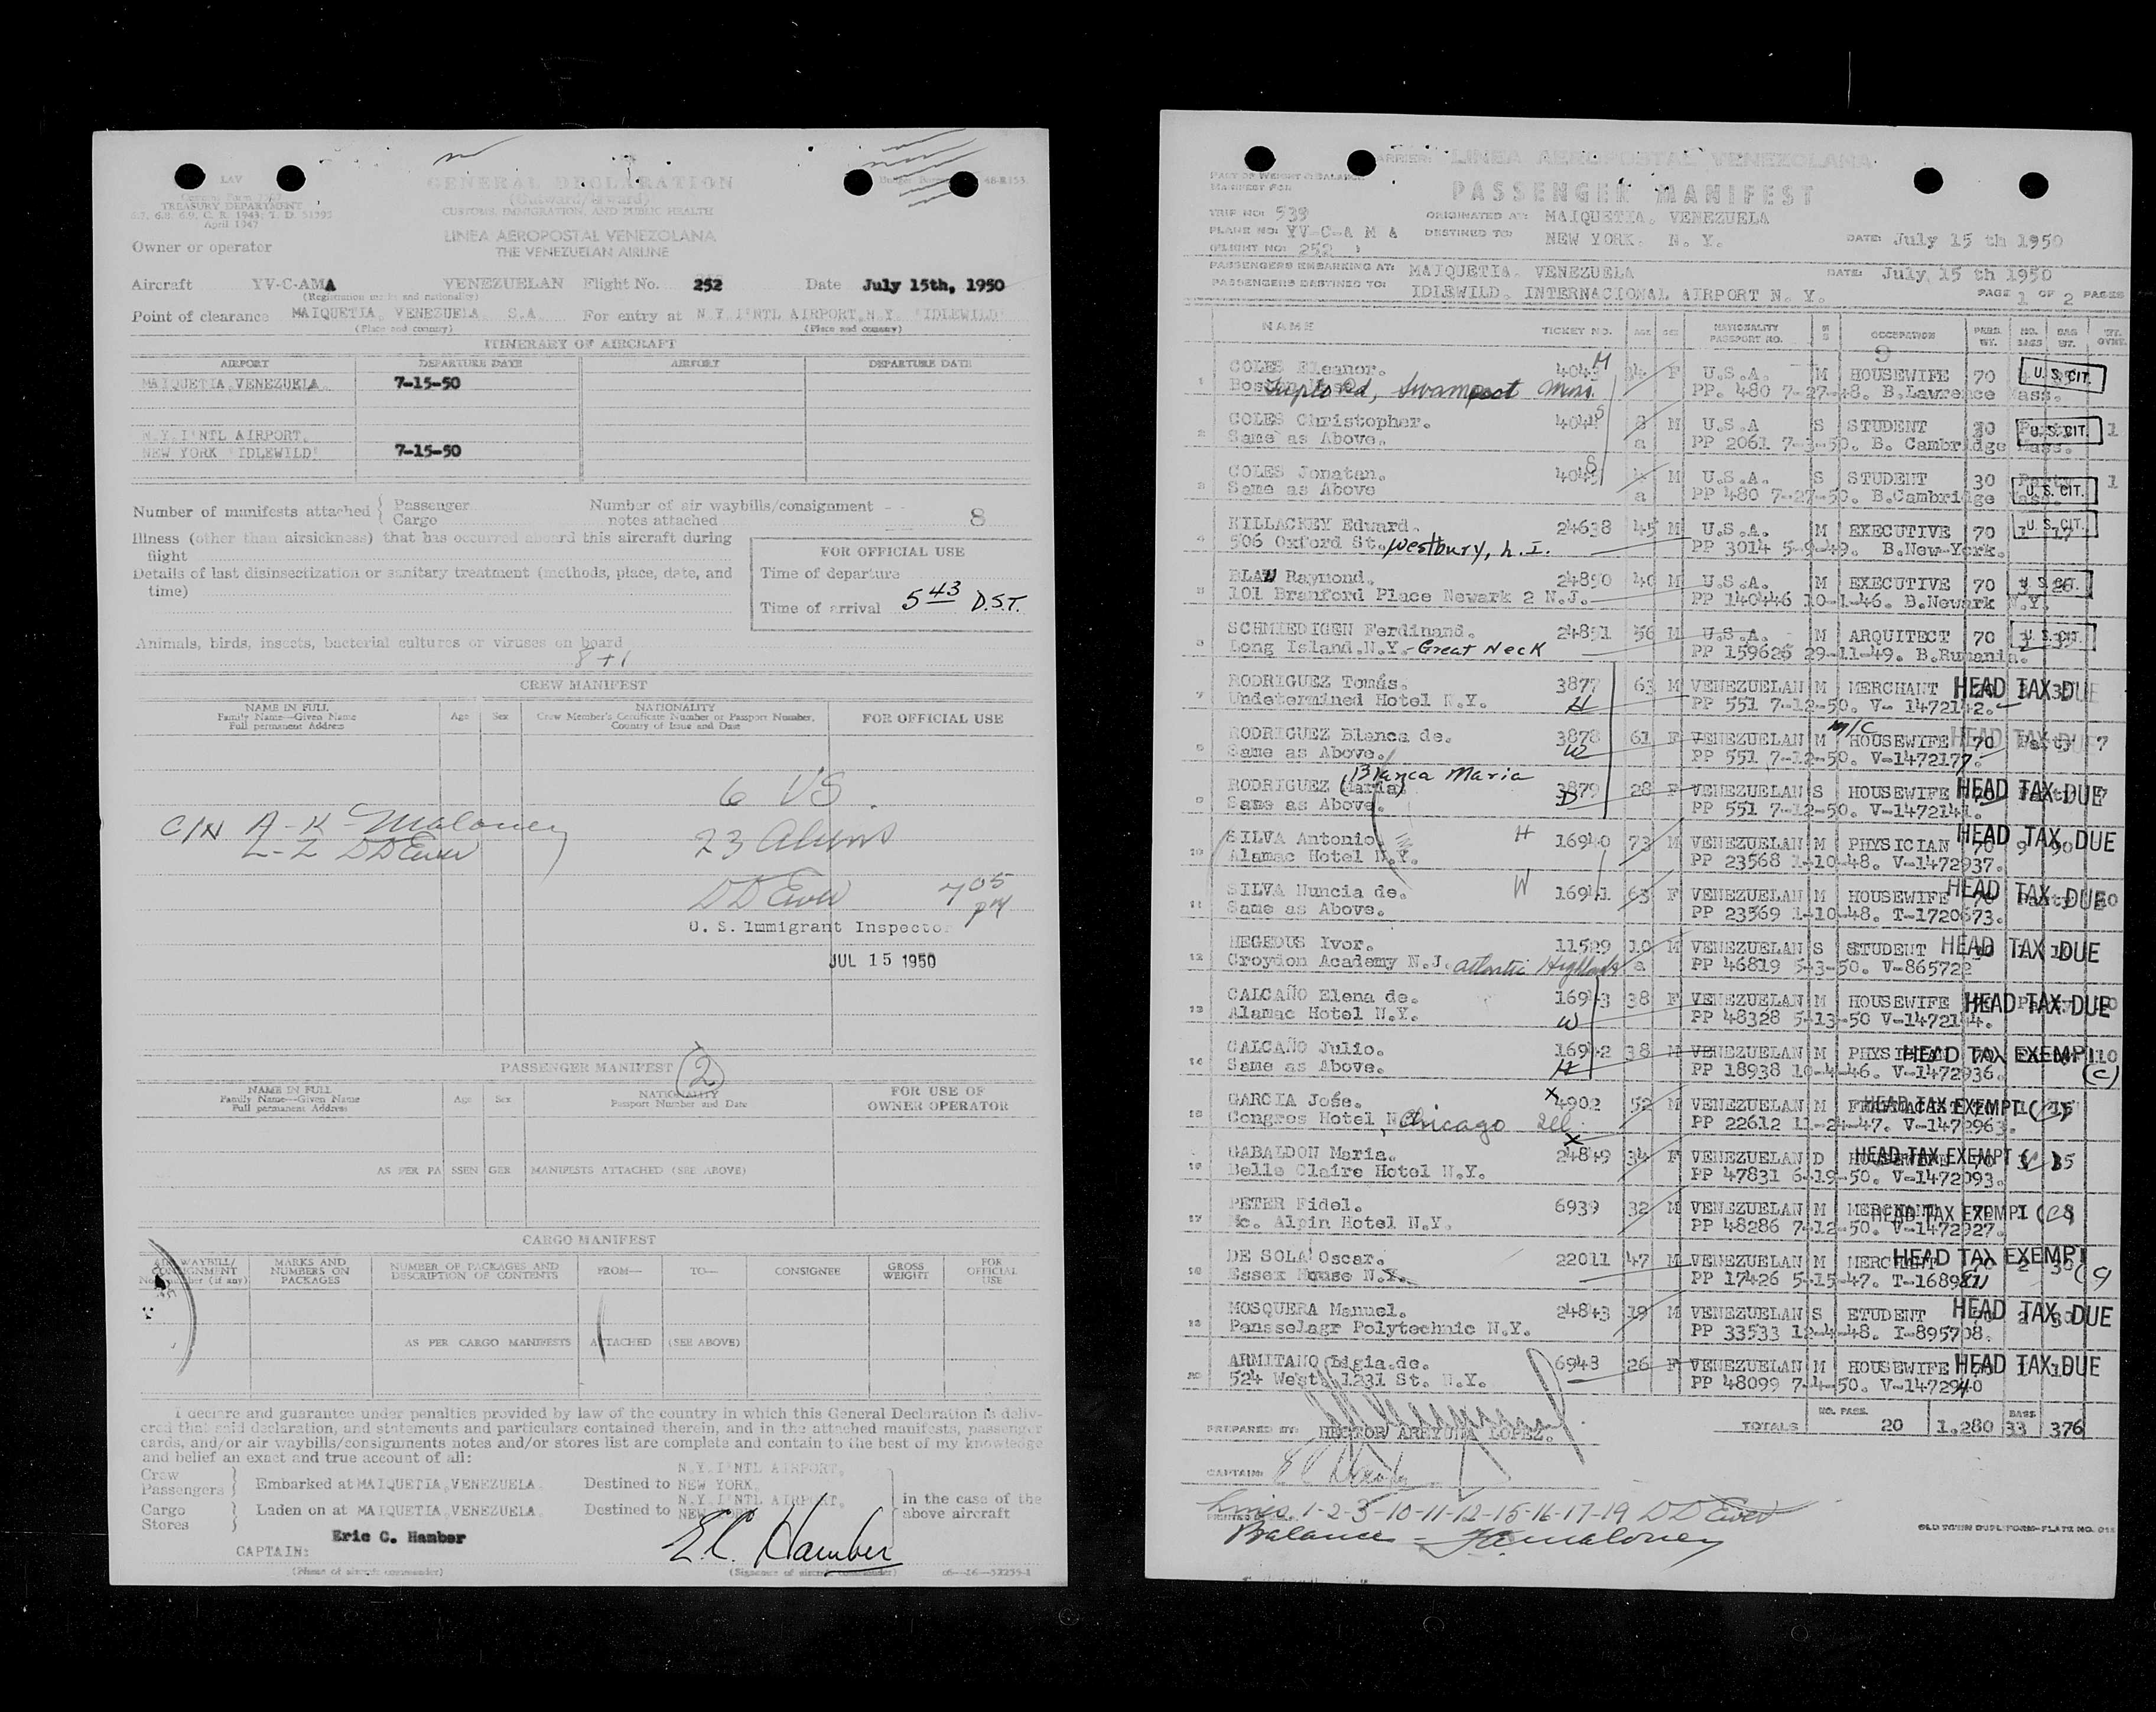 LAV
TREASURY DEPARTMENT
April 1947
GENERAL DECLARATION
(Outward/Inward)
CUSTOMS, IMMIGRATION, AND PUBLIC HEALTH
48-R153
LINEA AEROPOSTAL VENEZOLANA
THE VENEZUELAN AIRLINE
Owner or operator
Aircraft YV-C-AMA VENEZUELAN Flight No. 252 Date July 15th, 1950
(Registration marks and nationality)
Point of clearance MAIQUETIA, VENEZUELA S.A. For entry at N.Y.I'NTL AIRPORT,N.Y. "IDLEWILD"
(Place and country) (Place and country)
ITINERARY OF AIRCRAFT
AIRPORT DEPARTURE DATE AIRPORT DEPARTURE DATE
MAIQUETIA,VENEZUELA. 7-15-50
N.Y.I'NTL AIRPORT.
NEW YORK "IDLEWILD" 7-15-50
Number of manifests attached Passenger Cargo
Number of air waybills/consignment notes attached 8
Illness (other than airsickness) that has occurred aboard this aircraft during flight
Details of last disinsectization or sanitary treatment (methods, place, date, and time)
FOR OFFICIAL USE
Time of departure
Time of arrival 5 43 D.S.T.
Animals, birds, insects, bacterial cultures or viruses on board
8+1
CREW MANIFEST
NAME IN FULL
Family Name—Given Name
Full permanent Address
Age Sex
NATIONALITY
Crew Member's Certificate Number or Passport Number,
Country of Issue and Date
FOR OFFICIAL USE
6 US
C/N A-K- Maloney
23 Aliens
L-Z DDEwer
DDEwer 7 05 pm
U. S. Immigrant Inspector
JUL 15 1950
PASSENGER MANIFEST (2)
NAME IN FULL
Family Name—Given Name
Full permanent Address
Age Sex
NATIONALITY
Passport Number and Date
FOR USE OF
OWNER OPERATOR
AS PER PASSENGER MANIFESTS ATTACHED (SEE ABOVE)
CARGO MANIFEST
AIR WAYBILL/CONSIGNMENT
Note number (if any)
MARKS AND NUMBERS ON PACKAGES
NUMBER OF PACKAGES AND DESCRIPTION OF CONTENTS
FROM— TO— CONSIGNEE GROSS WEIGHT FOR OFFICIAL USE
AS PER CARGO MANIFESTS ATTACHED (SEE ABOVE)
I declare and guarantee under penalties provided by law of the country in which this General Declaration is deliv-
ered that said declaration, and statements and particulars contained therein, and in the attached manifests, passenger
cards, and/or air waybills/consignments notes and/or stores list are complete and contain to the best of my knowledge
and belief an exact and true account of all:
Crew
Passengers Embarked at MAIQUETIA,VENEZUELA. Destined to N.Y.I'NTL AIRPORT, NEW YORK.
Cargo
Stores Laden on at MAIQUETIA,VENEZUELA. Destined to N.Y.I'NTL AIRPORT, NEW YORK
in the case of the above aircraft
Eric C. Hamber
CAPTAIN:
E.C. Hamber
(Name of aircraft commander) (Signature of aircraft commander)
CARRIER: LINEA AEROPOSTAL VENEZOLANA
PART OF WEIGHT & BALANCE
MANIFEST FOR
PASSENGER MANIFEST
TRIP NO: 539 ORIGINATED AT: MAIQUETIA. VENEZUELA
PLANE NO: YV-C-A M A DESTINED TO: NEW YORK. N. Y. DATE: July 15 th 1950
(FLIGHT NO: 252 )
PASSENGERS EMBARKING AT: MAIQUETIA. VENEZUELA DATE: July, 15 th 1950
PASSENGERS DESTINED TO: IDLEWILD. INTERNACIONAL AIRPORT N. Y. PAGE 1 OF 2 PAGES
NAME TICKET NO. AGE SEX NATIONALITY PASSPORT NO. OCCUPATION PASS. WT. NO. BAGS BAG WT.
9
1 COLES Eleanor. 4043 M 34 F U.S.A. M HOUSEWIFE 70 U. S. CIT.
Swampscot Mass. PP. 480 7-27-48. B.Lawrence Mass.
2 COLES Christopher. 4044 S 8 M U.S.A S STUDENT 30 U. S. CIT. 1
Same as Above. a PP 2061 7-3-50. B. Cambridge Mass.
3 COLES Jonatan. 4045 S 4 M U.S.A. S STUDENT 30 Party 1
Same as Above a PP 480 7-27-50. B.Cambridge Mass. U. S. CIT.
4 KILLACKEY Edward. 24638 45 M U.S.A. M EXECUTIVE 70 1 17 U. S. CIT.
506 Oxford St. Westbury, L. I. PP 3014 5-9-49. B.New-York.
5 BLAU Raymond. 24850 40 M U.S.A. M EXECUTIVE 70 U. S. CIT.
101 Branford Place Newark 2 N.J. PP 140446 10-1-46. B.Newark N.Y.
6 SCHMIEDIGEN Ferdinand. 24851 56 M U.S.A. M ARQUITECT 70 U. S. CIT.
Long Island.N.Y.-Great Neck PP 159626 29-11-49. B.Rumania.
7 RODRIGUEZ Tomás. 3877 63 M VENEZUELAN M MERCHANT HEAD TAX DUE
Undetermined Hotel N.Y. H PP 551 7-12-50. V- 1472142.
8 RODRIGUEZ Blanca de. 3878 61 F VENEZUELAN M HOUSEWIFE m/c 70 HEAD TAX DUE 7
Same as Above. W PP 551 7-12-50. V-1472177.
9 RODRIGUEZ (Maria) Blanca Maria 3879 28 F VENEZUELAN S HOUSEWIFE HEAD TAX DUE 7
Same as Above. D PP 551 7-12-50. V-1472141.
10 SILVA Antonio H 16940 73 M VENEZUELAN M PHYSICIAN 70 HEAD TAX DUE
Alamac Hotel N.Y. PP 23568 1-10-48. V-1472937.
11 SILVA Nuncia de. W 16941 63 F VENEZUELAN M HOUSEWIFE HEAD TAX DUE
Same as Above. PP 23569 1-10-48. T-1720673.
12 HEGEDUS Ivor. 11529 10 M VENEZUELAN S STUDENT HEAD TAX DUE
Croydon Academy N.J. Atlantic Highlands a PP 46819 5-3-50. V-865722
13 CALCAÑO Elena de. 16943 38 F VENEZUELAN M HOUSEWIFE HEAD TAX DUE
Alamac Hotel N.Y. W PP 48328 5-13-50 V-1472144.
14 CALCAÑO Julio. 16942 38 M VENEZUELAN M PHYSICIAN HEAD TAX EXEMPT 10 (C)
Same as Above. H PP 18938 10-4-46. V-1472936.
15 GARCIA José. x 4902 52 M VENEZUELAN M HEAD TAX EXEMPT (C)
Congres Hotel Chicago Ill. PP 22612 11-24-47. V-1472963.
16 GABALDON Maria. x 24849 34 F VENEZUELAN D HOUSEWIFE HEAD TAX EXEMPT
Belle Claire Hotel N.Y. PP 47831 6-19-50. V-1472093.
17 PETER Fidel. 6939 32 M VENEZUELAN M MERCHANT HEAD TAX EXEMPT
Mc. Alpin Hotel N.Y. PP 48286 7-12-50. V-1472927.
18 DE SOLA Oscar. 22011 47 M VENEZUELAN M MERCHANT HEAD TAX EXEMPT
Essex House N.Y. PP 17426 5-15-47.
19 MOSQUERA Manuel. 24843 19 M VENEZUELAN S ETUDENT HEAD TAX DUE
PansseJagr Polytechnic N.Y. PP 33533 12-4-48. I-895708.
20 ARMITANO Ligia.de. 6943 26 F VENEZUELAN M HOUSEWIFE HEAD TAX DUE
524 West. 1231 St. N.Y. PP 48099 7-4-50. V-1472940
TOTALS NO. PASS. 20 1.280 BAGS 33 376
PREPARED BY: HECTOR AREYUNA LOPEZ.
CAPTAIN:
Lines 1-2-3-10-11-12-15-16-17-19 DDEwer
Balance - Maloney
OLD TOWN DUPLIFORM-PLATE NO.